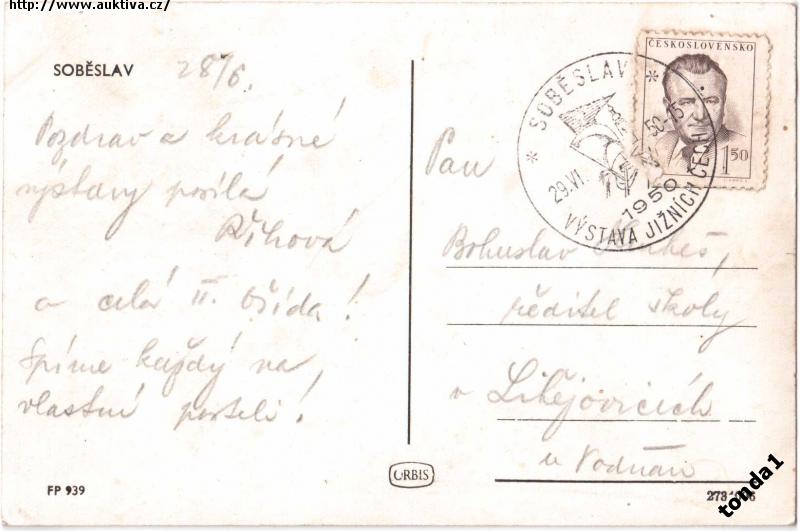 http://www.auktiva.cz/
SOBĚSLAV
28/6.
Pozdrav a krásné
výstavy posílá
Říhová
a celá II. třída!
Spíme každý na
vlastní posteli!
FP 939
ORBIS
ČESKOSLOVENSKO
1 50
* SOBĚSLAV *
29.VI. 50-15
1950
VÝSTAVA JIŽNÍCH ČECH
Pan
Bohuslav
ředitel školy
v Libějovicích
u Vodňan
tonda1